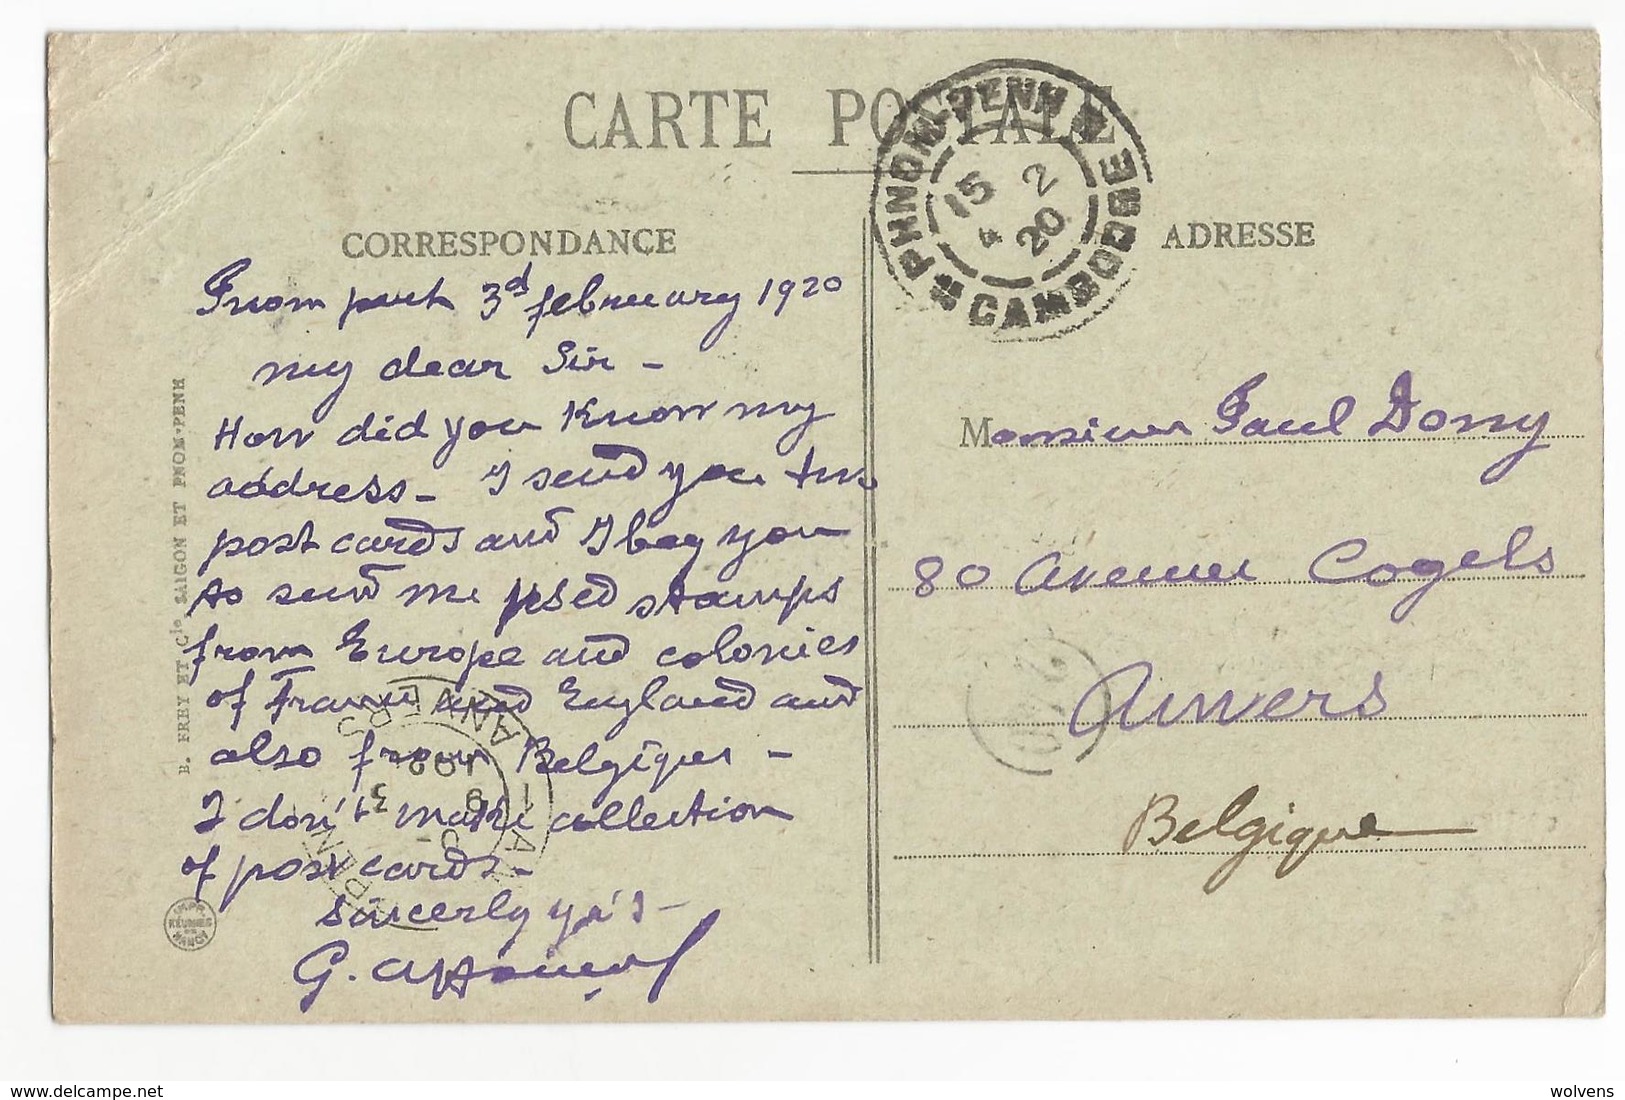 CARTE POSTALE
PHNOM-PENH
CAMBODGE
15 2
4 20
CORRESPONDANCE
3d february 1920
my dear Sir -
How did you know my
address - I send you two
post cards and I beg you
to send me used stamps
from Europe and colonies
of France and England and
also from Belgique -
I don't make collection
of post cards -
sincerly yrs -
G.
B. FREY ET Cie, SAIGON ET PNOM-PENH
IMPR.
RÉUNIES
DE
NANCY
ANVERS
ADRESSE
Monsieur Paul Domy
80 Avenue Cogels
Anvers
Belgique
wolvens